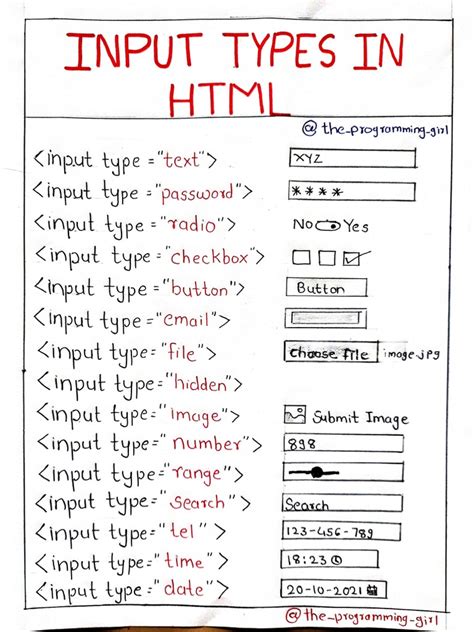 INPUT TYPES IN
HTML
@the_programming_girl
<input type="text"> XYZ
<input type="password"> ****
<input type="radio"> No Yes
<input type="checkbox">
<input type="button"> Button
<input type="email">
<input type="file"> choose file image.jpg
<input type="hidden">
<input type="image"> Submit Image
<input type="number"> 898
<input type="range">
<input type="search"> Search
<input type="tel"> 123-456-789
<input type="time"> 18:23
<input type="date"> 20-10-2021
@the_programming_girl